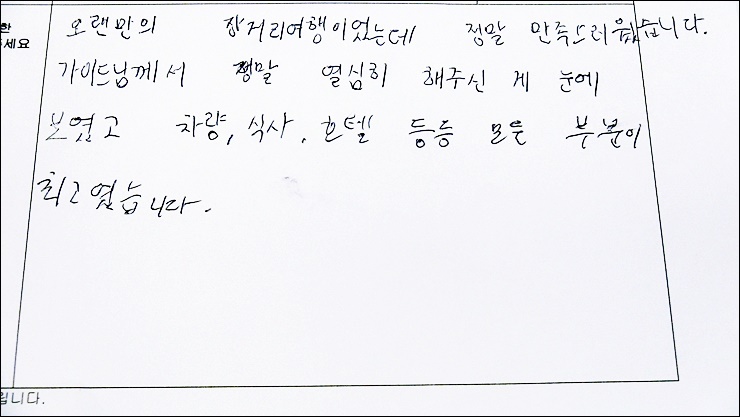 한
세요
오랜만의 장거리여행이었는데 정말 만족스러웠습니다.
가이드님께서 정말 열심히 해주신 게 눈에
보였고 차량, 식사, 호텔 등등 모든 부분이
최고였습니다.
됩니다.